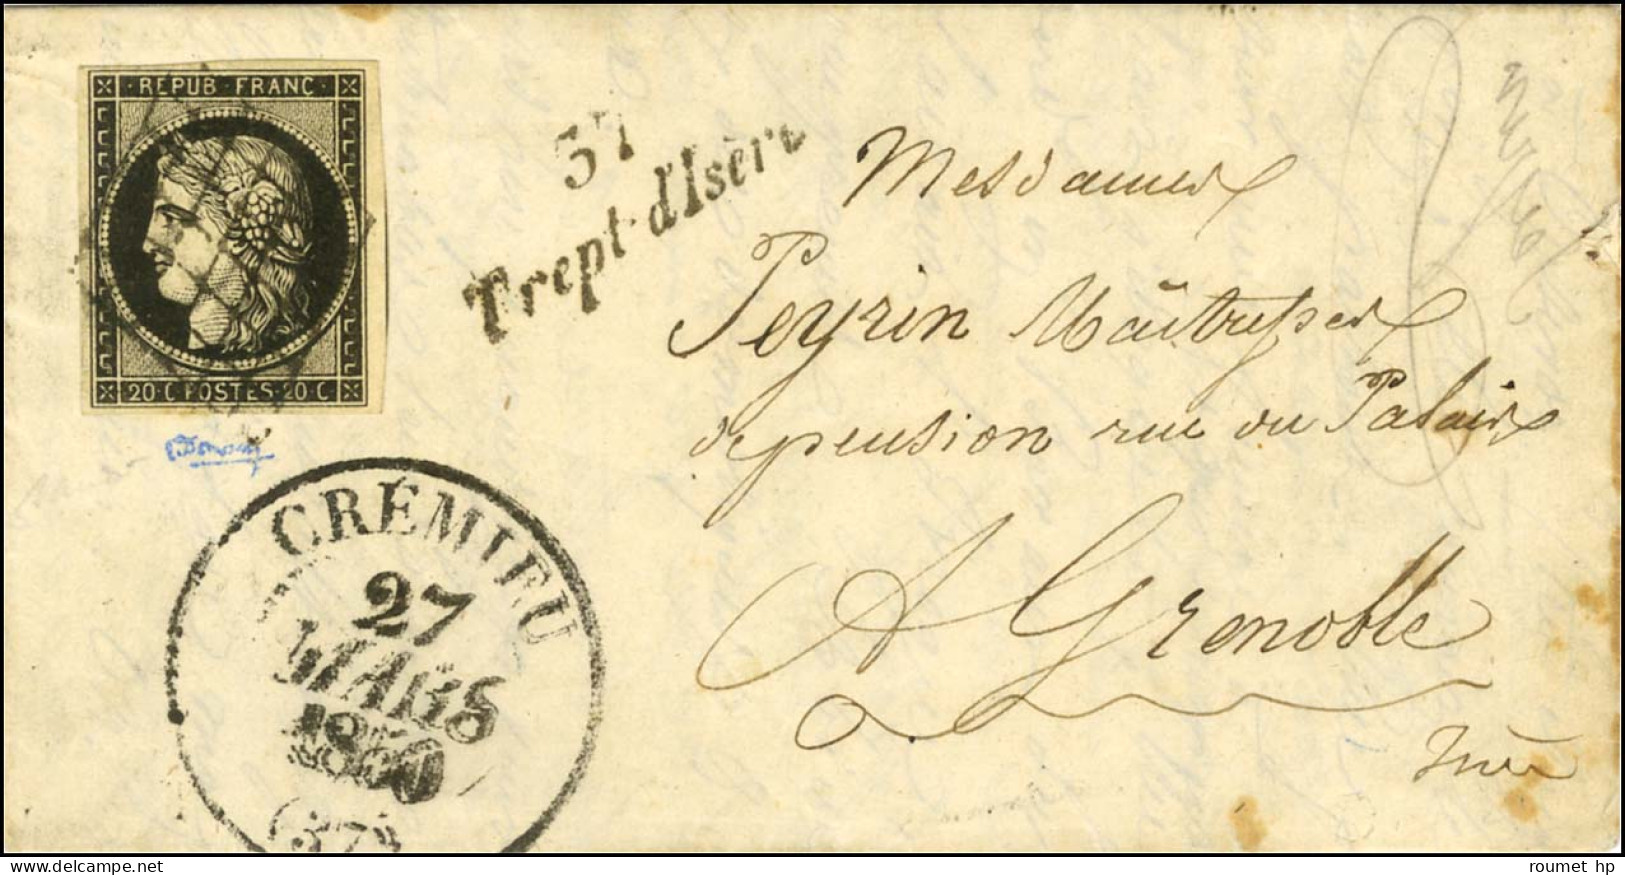 REPUB FRANC
20·C POSTES 20·C
37
Trept-d'Isère
CRÉMIEU
27
MARS
1850
(37)
Mesdames
Peyrin Maîtresses
de pension rue du Palais
A Grenoble
Isère
roumet hp